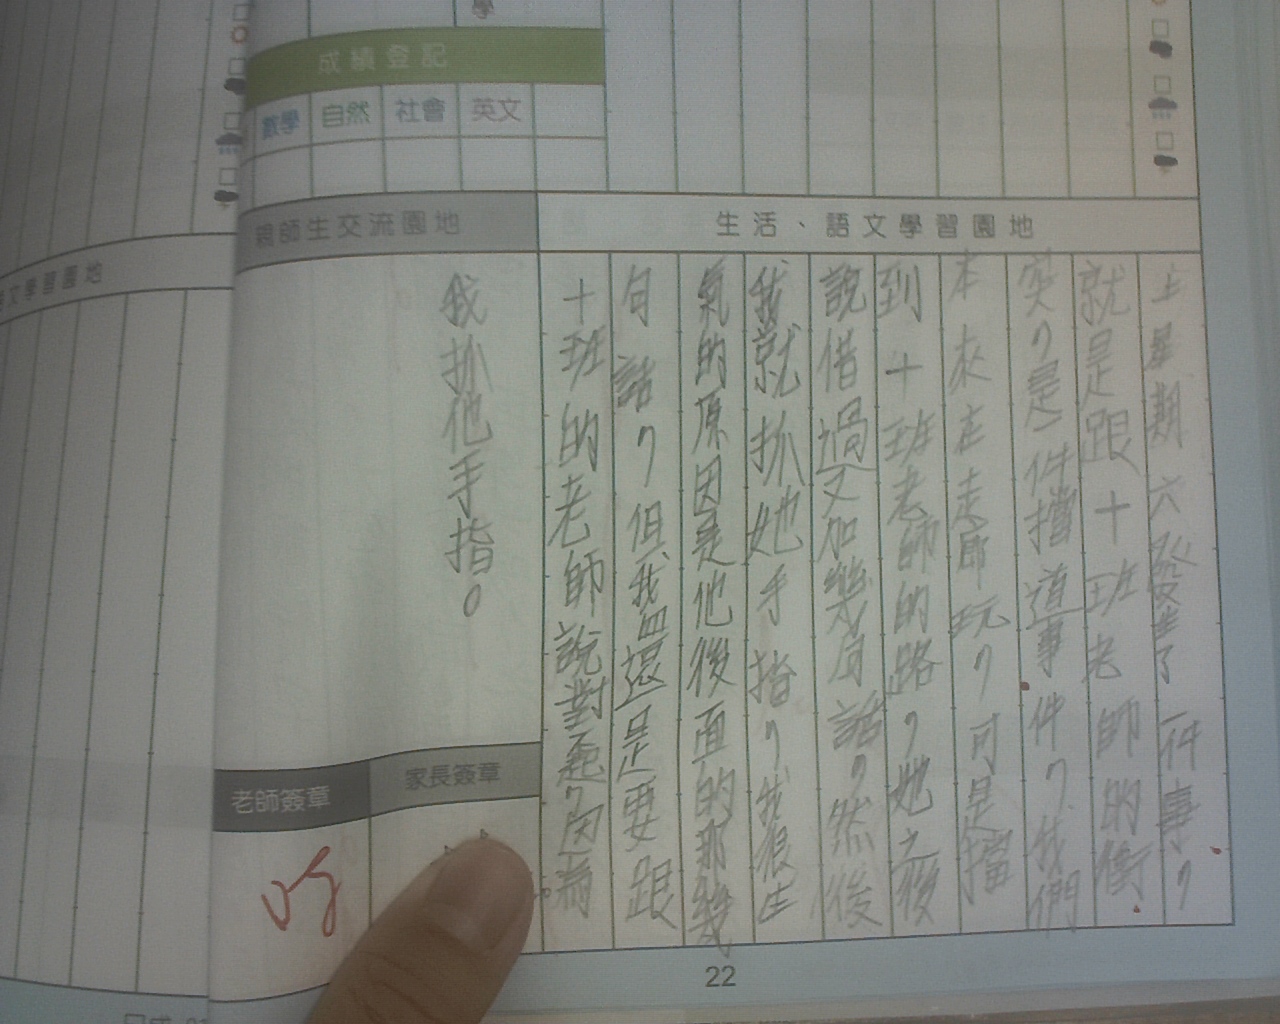 學
成績登記
數學 自然 社會 英文
生活、語文學習園地
上星期六發生了一件事,
就是跟十班老師的衝
突,是件擋道事件,我們
本來在走廊玩,可是擋
到十班老師的路,她之後
說借過又加幾句話,然後
我就抓她手指,我很生
氣的原因是他後面的那幾
句話,但我還是要跟
十班的老師說對不起,因為
親師生交流園地
我抓他手指。
老師簽章
家長簽章
22
文學習園地